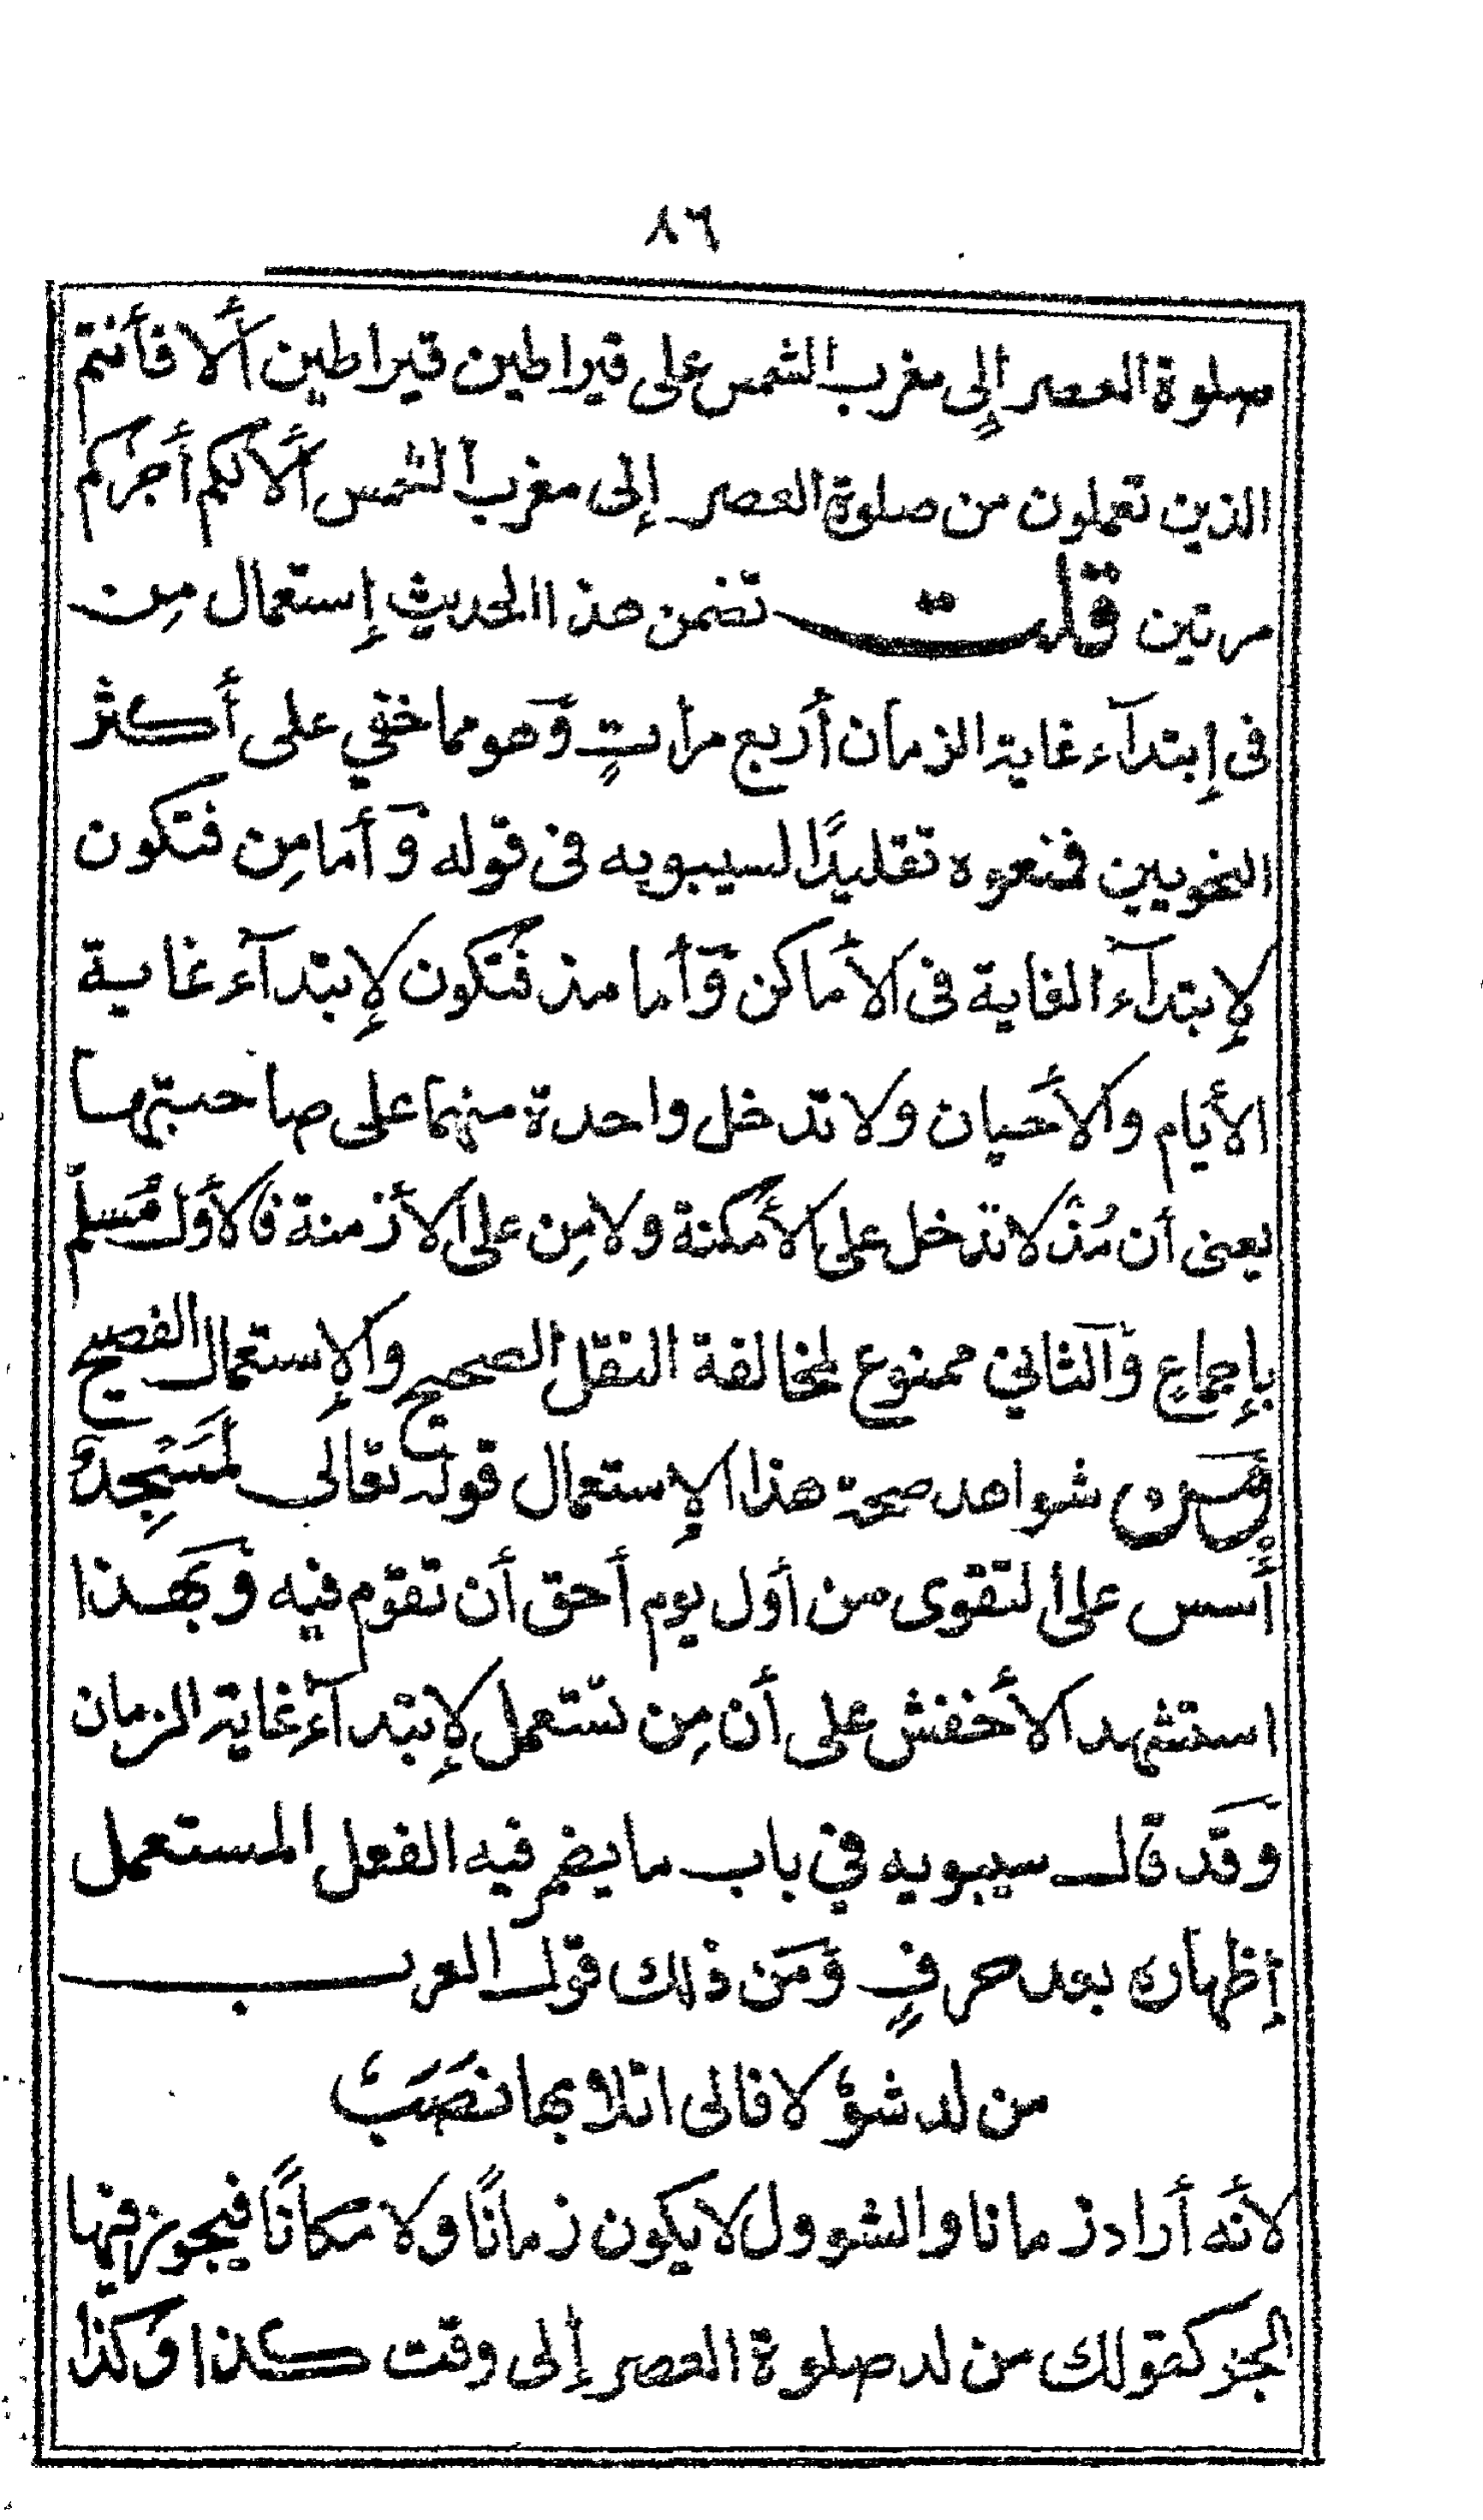 ٨٦
صلوة العصر إلى مغرب الشمس على قيراطين قيراطين ألا فأنتم
الذين تعملون من صلوة العصر إلى مغرب الشمس ألا لكم أجركم
مرتين قلت تضمن هذا الحديث إستعمال مِن
فى إبتدآء غاية الزمان أربع مراتٍ وَهو مما خفي على أكثر
النحويين فمنعوه تقليدًا لسيبويه فى قوله وَأما مِن فتكون
لإبتدآء الغاية فى الأماكن وَأما مذ فتكون لإبتدآء غاية
الأيام والأحيان ولا تدخل واحدة منهما على صاحبتها
يعنى أن مُذْ لا تدخل على الأمكنة ولا مِن على الأزمنة فالأول مُسلم
بإجماعٍ وَالثاني ممنوع لمخالفة النقل الصحيح والإستعمال الفصيح
وَمِن شواهد صحة هذا الإستعمال قوله تعالى لَمَسْجِدٌ
أسس على التقوى من أول يوم أحق أن تقوم فيه وَبهذا
استشهد الأخفش على أن مِن تستعمل لإبتدآء غاية الزمان
وَقد قال سيبويه في باب ما يضمر فيه الفعل المستعمل
إظهاره بعد حرفٍ وَمن ذلك قول العرب
من لد شؤلا فالى اتلائها نَصَبَ
لأنه أراد زمانا والشوول لا يكون زمانًا ولا مكانًا فيجوز فيها
الجر كقولك من لد صلوة العصر إلى وقت كذا وَكذا